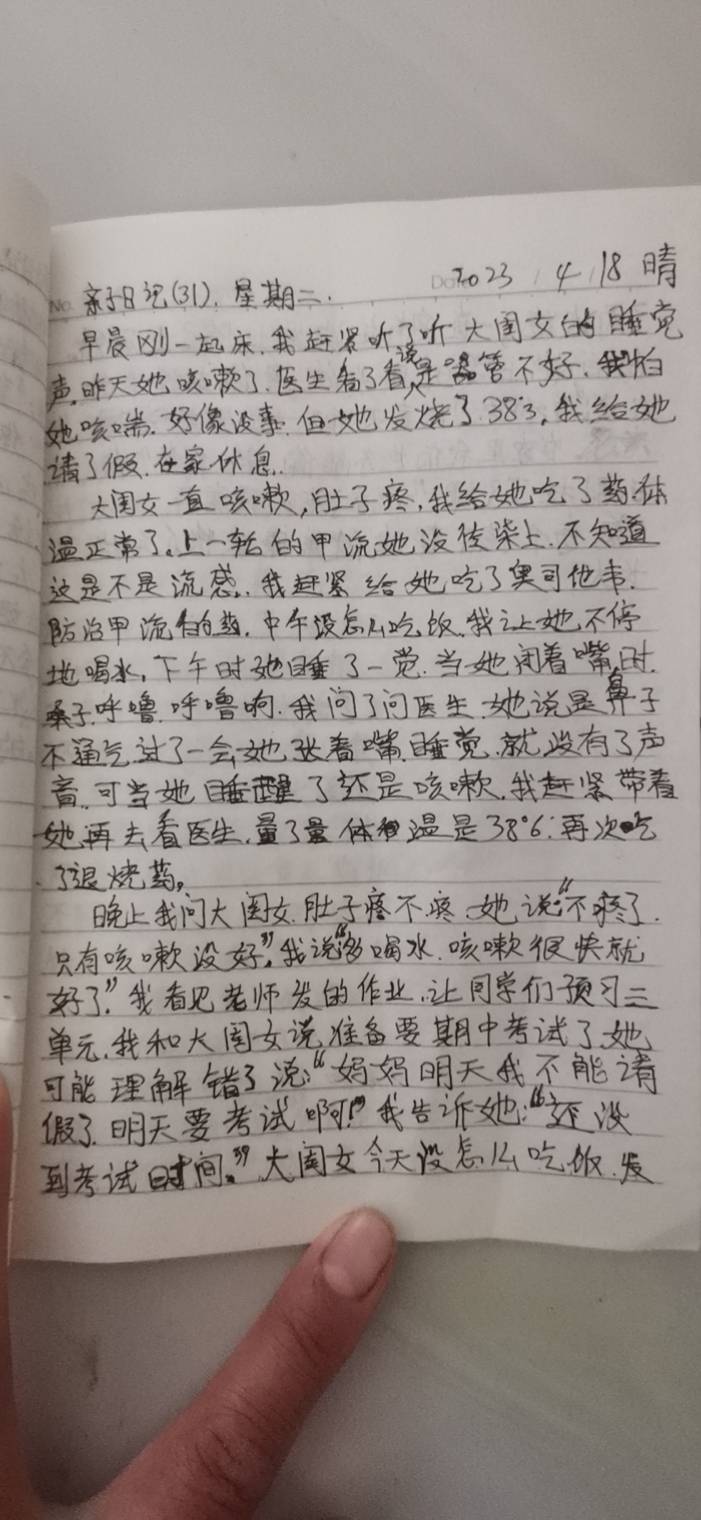 No. 亲子日记(31). 星期二. Date 2023 / 4 / 18 晴
早晨刚一起床.我赶紧听了听大闺女的睡觉
声.昨天她咳嗽了.医生看了看说是器管不好.我怕
她咳喘.好像没事.但她发烧了38°3,我给她
请了假.在家休息.
大闺女一直咳嗽,肚子疼,我给她吃了药.体
温正常了.上一轮的甲流她没传染上.不知道
这是不是流感.我赶紧给她吃了奥司他韦.
防治甲流的药.中午没怎么吃饭.我让她不停
地喝水,下午时她睡了一觉.当她闭着嘴时.
桑子呼噜.呼噜响.我问了问医生.她说是鼻子
不通气.过了一会她张着嘴睡觉.就没有了声
音.可当她睡醒了还是咳嗽.我赶紧带着
她再去看医生.量了量体温是38°6.再次吃
了退烧药,
晚上我问大闺女.肚子疼不疼.她说:“不疼了.
只有咳嗽没好”,我说:“多喝水.咳嗽很快就
好了.”我看见老师发的作业.让同学们预习三
单元.我和大闺女说准备要期中考试了.她
可能理解错了说:“妈妈明天我不能请
假了.明天要考试啊!”我告诉她:“还没
到考试时间.”大闺女今天没怎么吃饭.发